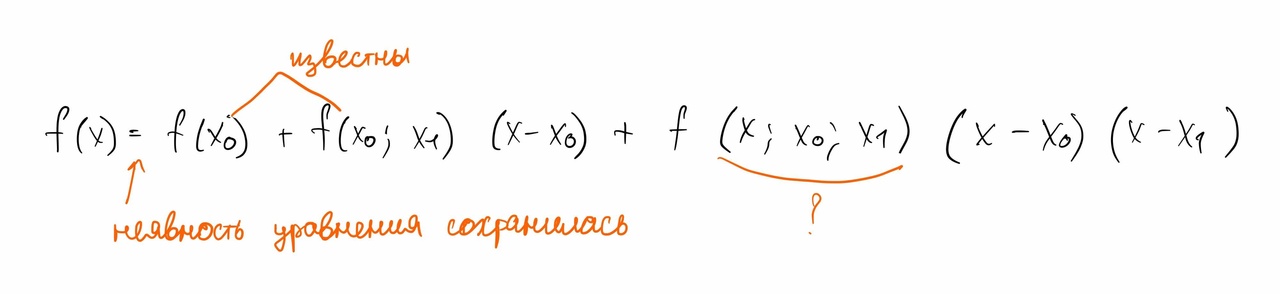 известны
f(x) = f(x₀) + f(x₀; x₁) (x - x₀) + f (x; x₀; x₁) (x - x₀) (x - x₁)
?
неявность уравнения сохранилась